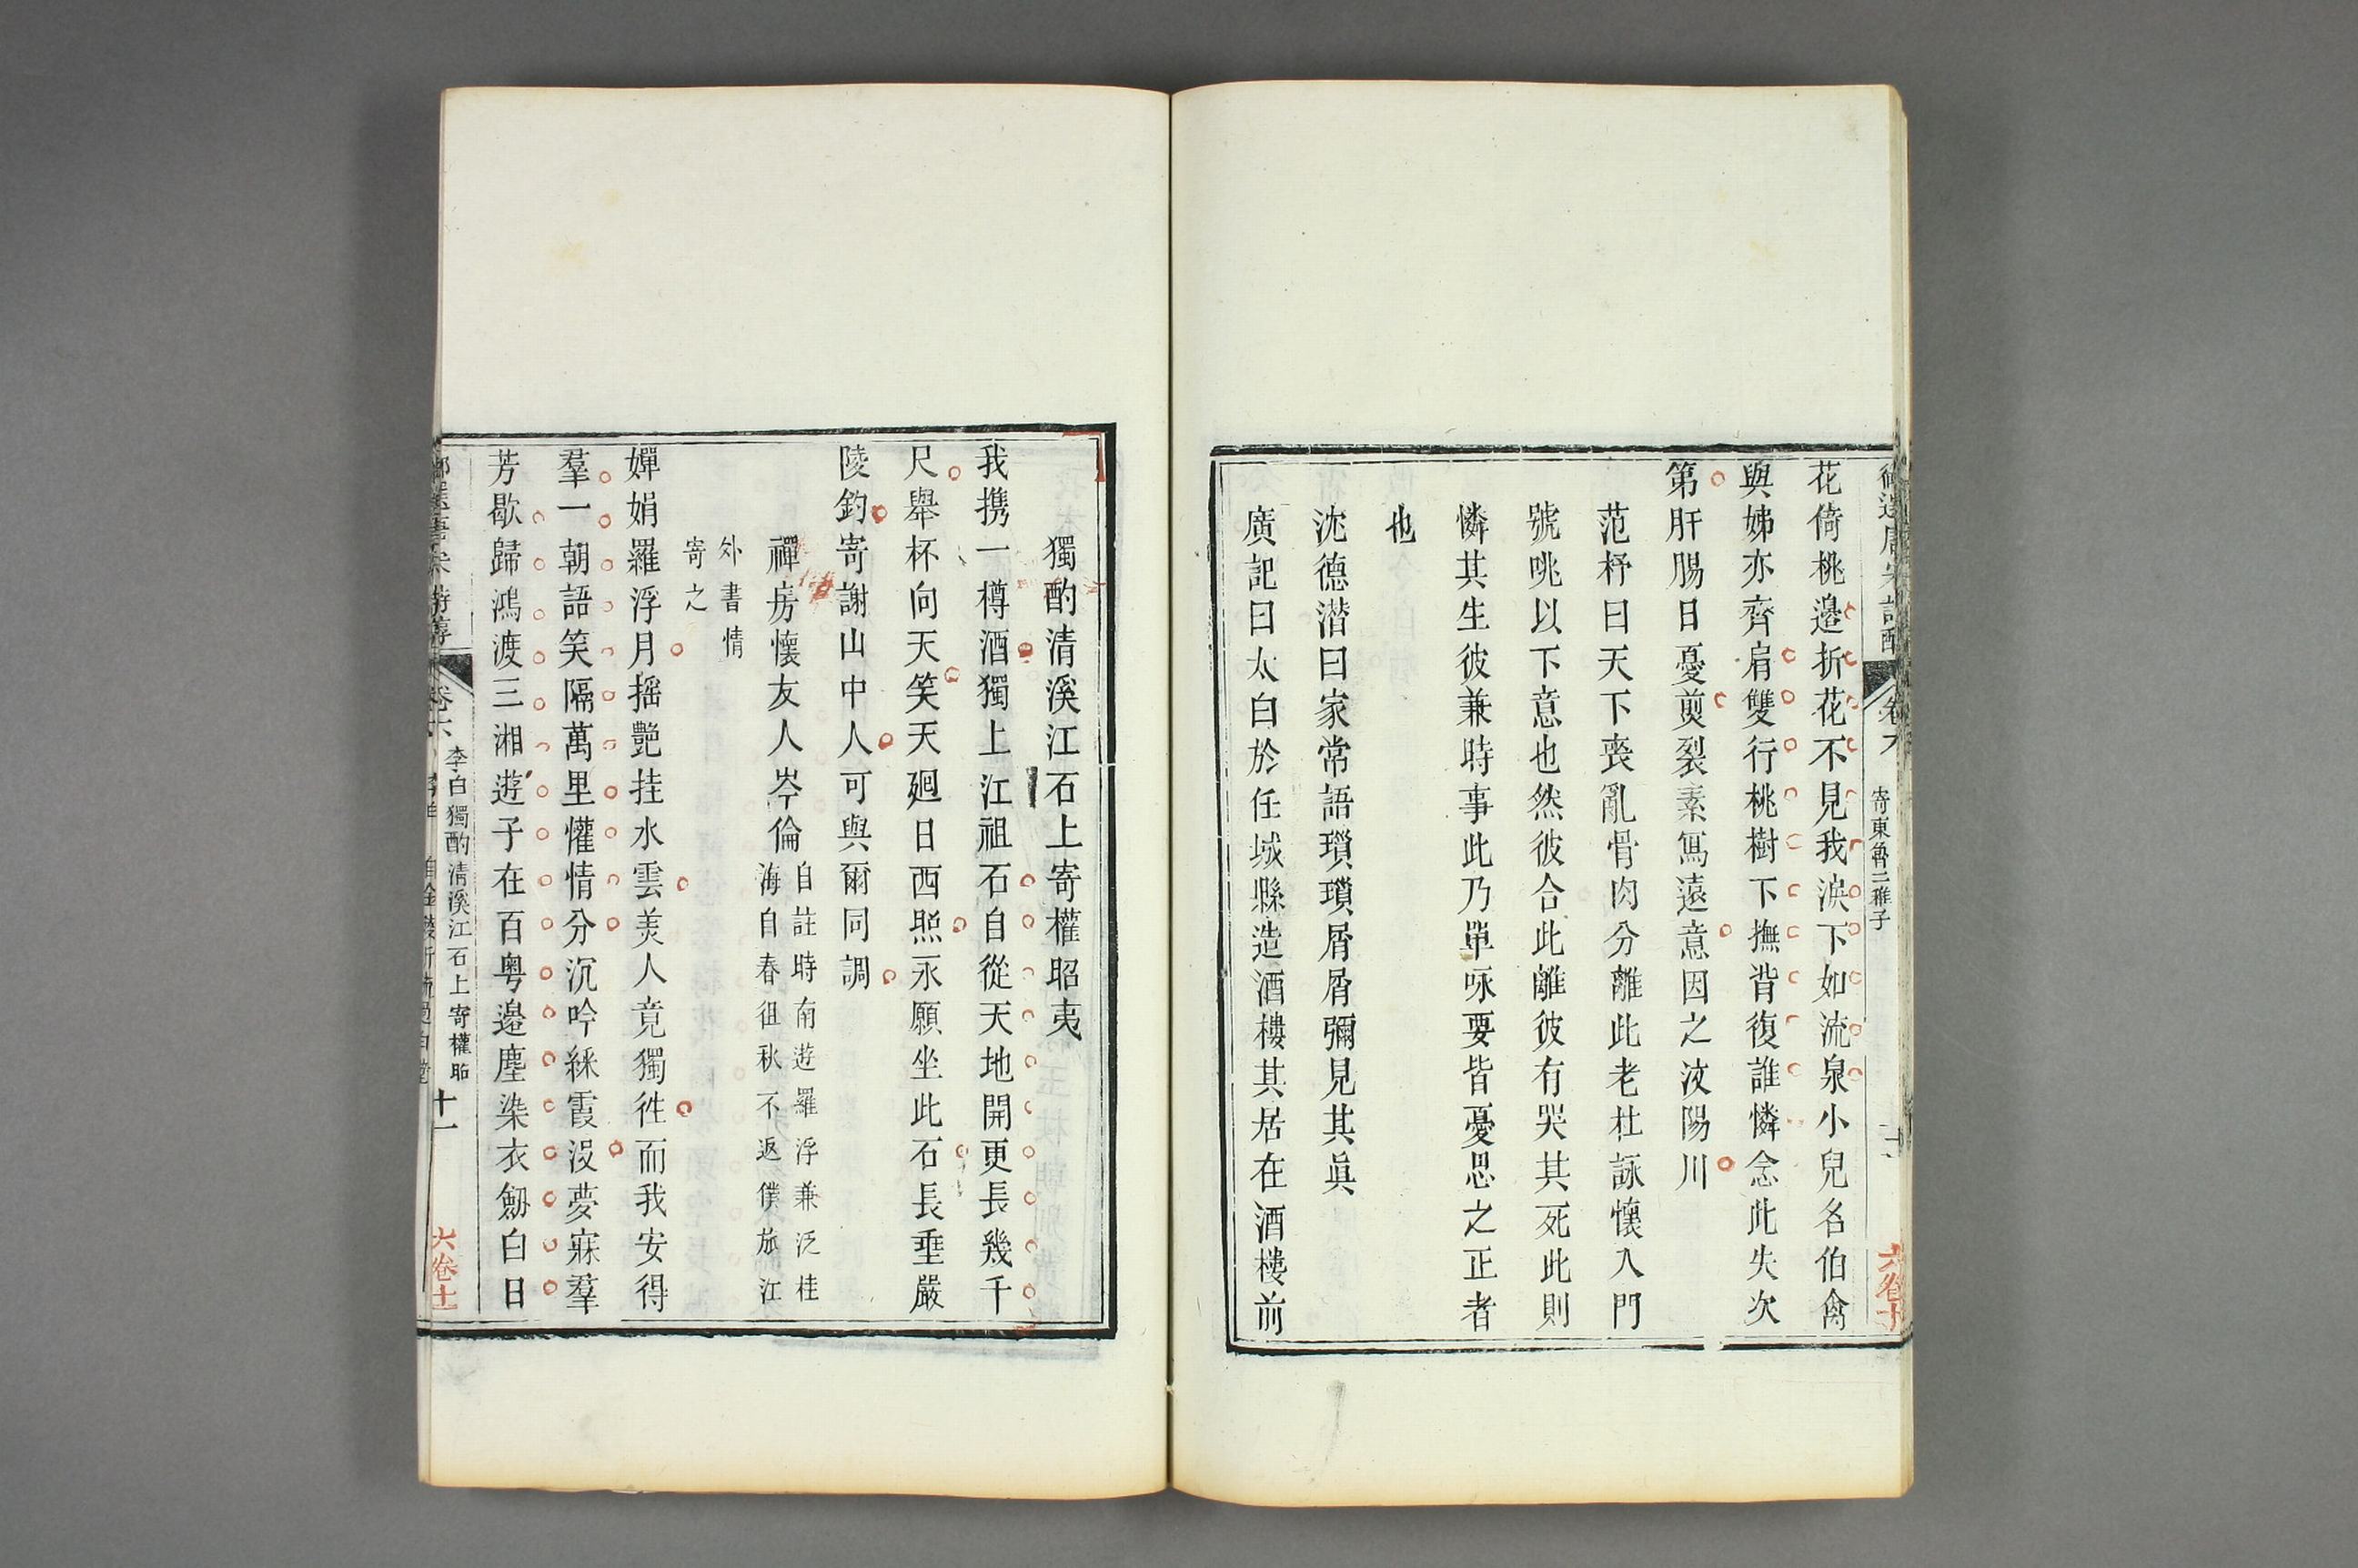 卷六
寄東魯二稚子
六卷十
花倚桃邊折花不見我淚下如流泉小兒名伯禽
與姊亦齊肩雙行桃樹下撫背復誰憐念此失次
第肝腸日憂煎裂素寫遠意因之汶陽川
范梈曰天下喪亂骨肉分離此老杜詠懷入門
號咷以下意也然彼合此離彼有哭其死此則
憐其生彼兼時事此乃單咏要皆憂思之正者
也
沈德潛曰家常語瑣瑣屑屑彌見其眞
廣記曰太白於任城縣造酒樓其居在酒樓前
獨酌清溪江石上寄權昭夷
我携一樽酒獨上江祖石自從天地開更長幾千
尺舉杯向天笑天廻日西照永願坐此石長垂嚴
陵釣寄謝山中人可與爾同調
禪房懷友人岑倫
自註時南遊羅浮兼泛桂
海自春徂秋不返僕旅江
外書情
寄之
嬋娟羅浮月搖艷挂水雲美人竟獨徃而我安得
羣一朝語笑隔萬里懽情分沉吟綵霞沒夢寐羣
芳歇歸鴻渡三湘遊子在百粵邊塵染衣劒白日
卷六
李白 獨酌清溪江石上寄權昭
十一
六卷十一